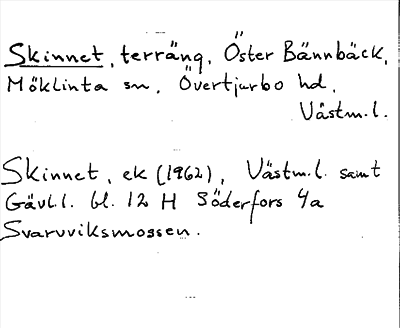 Skinnet, terräng, Öster Bännbäck,
Möklinta sn, Övertjurbo hd,
Västm.l.
Skinnet, ek (1962), Västm.l. samt
Gävl.l. bl. 12 H Söderfors 4a
Svarvviksmossen.